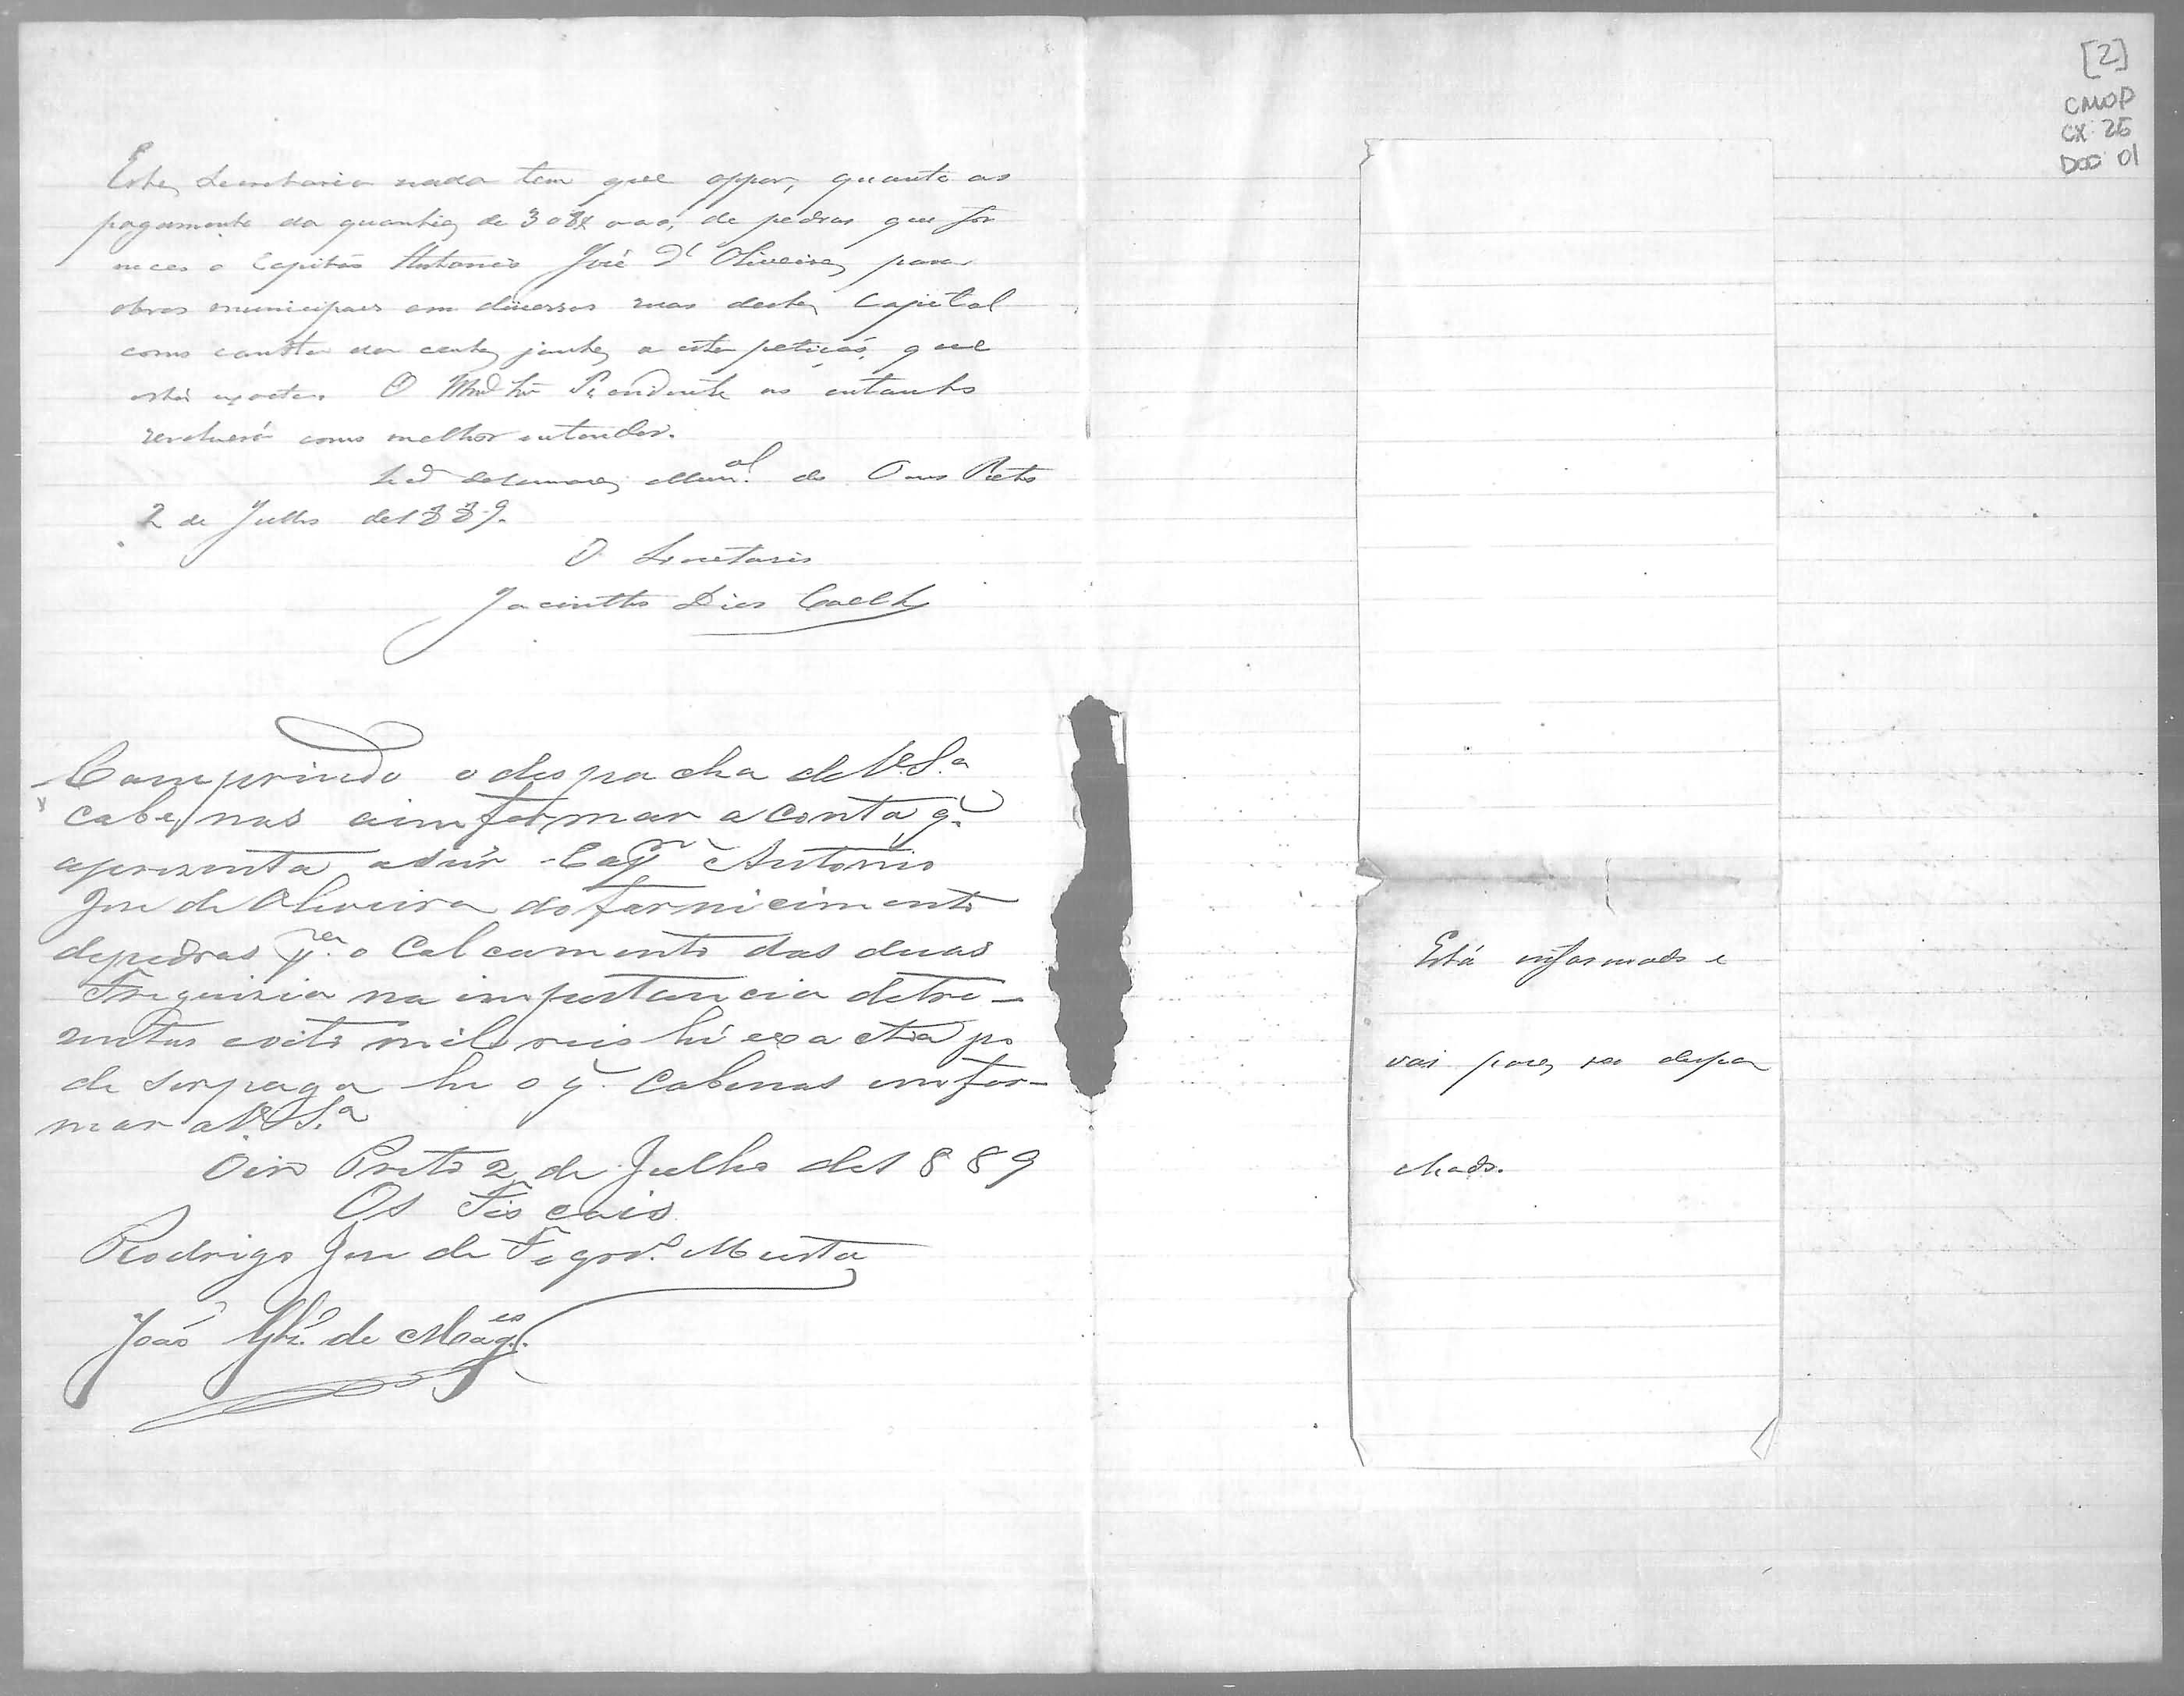 [2]
CMOP
CX 25
DOC 01
Esta Secretaria nada tem que oppor, quanto ao
pagamento da quantia de 308$000, de pedras que for
neceo o Capitão Antonio José d' Oliveira para
obras municipaes em diversas ruas desta Capital
como consta da conta junta a esta petição, que
está exacta. O Presidente no entanto
resolverá como melhor entender.
da Camara Mun.al de Ouro Preto
2 de Julho de 1889.
O Secretario
Jacintho Dias Coelho
Comprindo o despacha de V.S.a
cabe nos a imformar a conta q.
apresenta a Antonio
Jose de Oliveira do fornicimento
de pedras p.a o Calcamento das duas
Freguizia na importancia de tre-
zentos e oito mil reis hé exacta po
de ser paga he o q. Cabenos imfor-
mar a V.S.a
Oiro Preto 2 de Julho de 1889
Os Fiscais
Rodrigo Jose de Figrd.o Murta
João de Mag.es
Está informado e
vai para ser despa
chado.